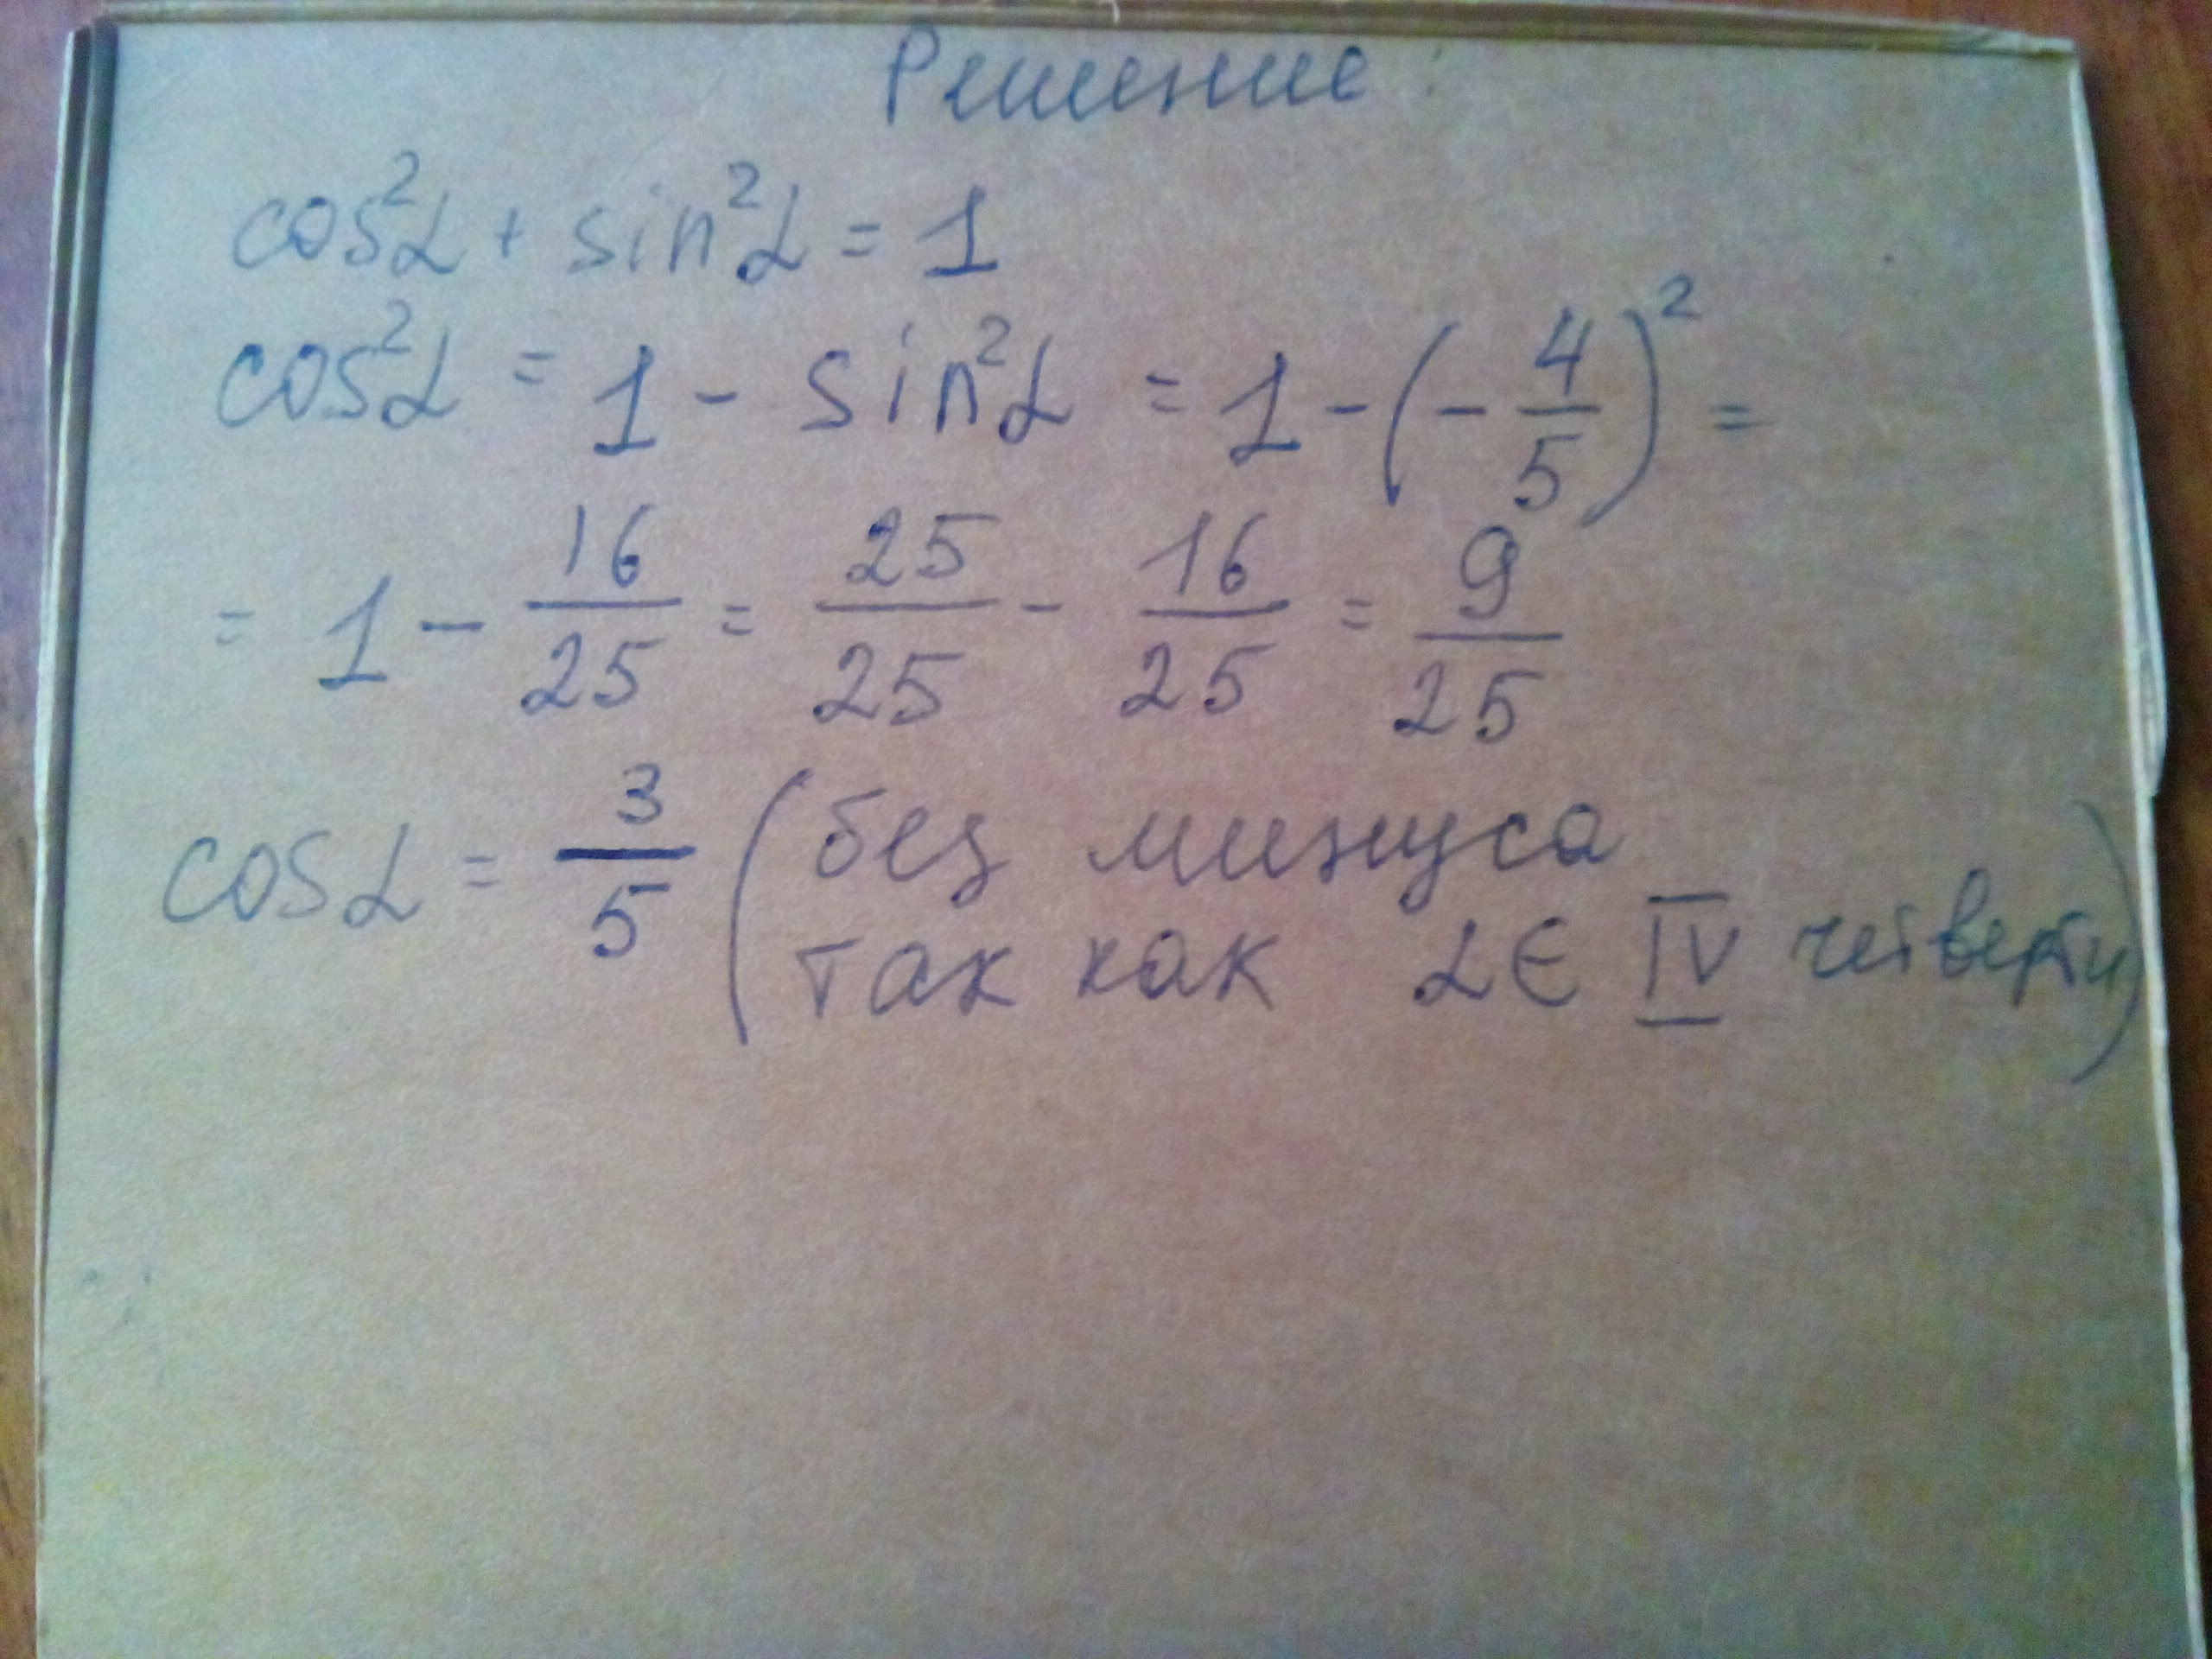 Решение:
cos²α + sin²α = 1
cos²α = 1 - sin²α = 1 - (- 4/5)² =
= 1 - 16/25 = 25/25 - 16/25 = 9/25
cos α = 3/5 (без минуса
так как α ∈ IV четверти)